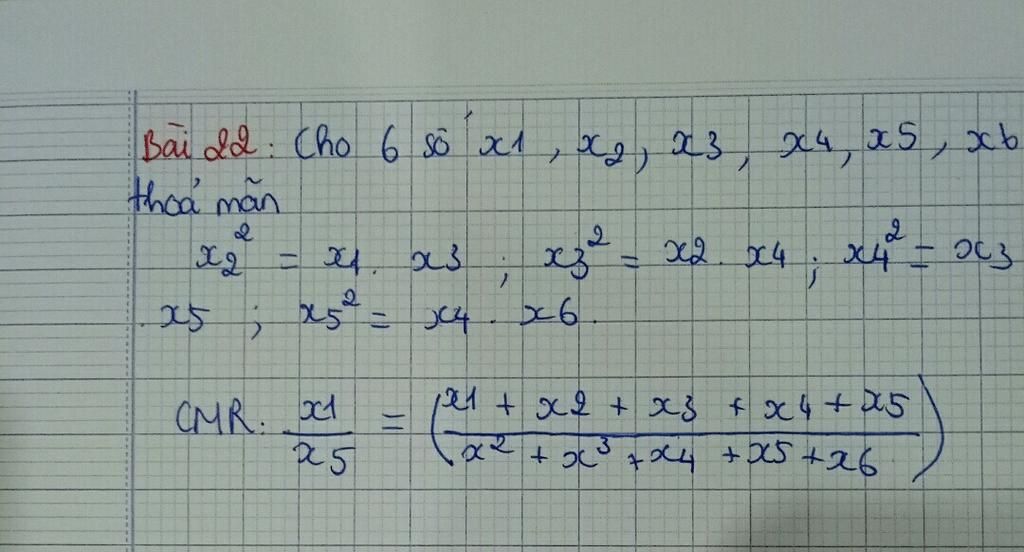 Bài 22: Cho 6 số x1, x2, x3, x4, x5, x6
thoả mãn
x2² = x1. x3 ; x3² = x2. x4 ; x4² = x3
. x5 ; x5² = x4. x6.
CMR: x1/x5 = ((x1 + x2 + x3 + x4 + x5)/(x² + x³ + x4 + x5 + x6))